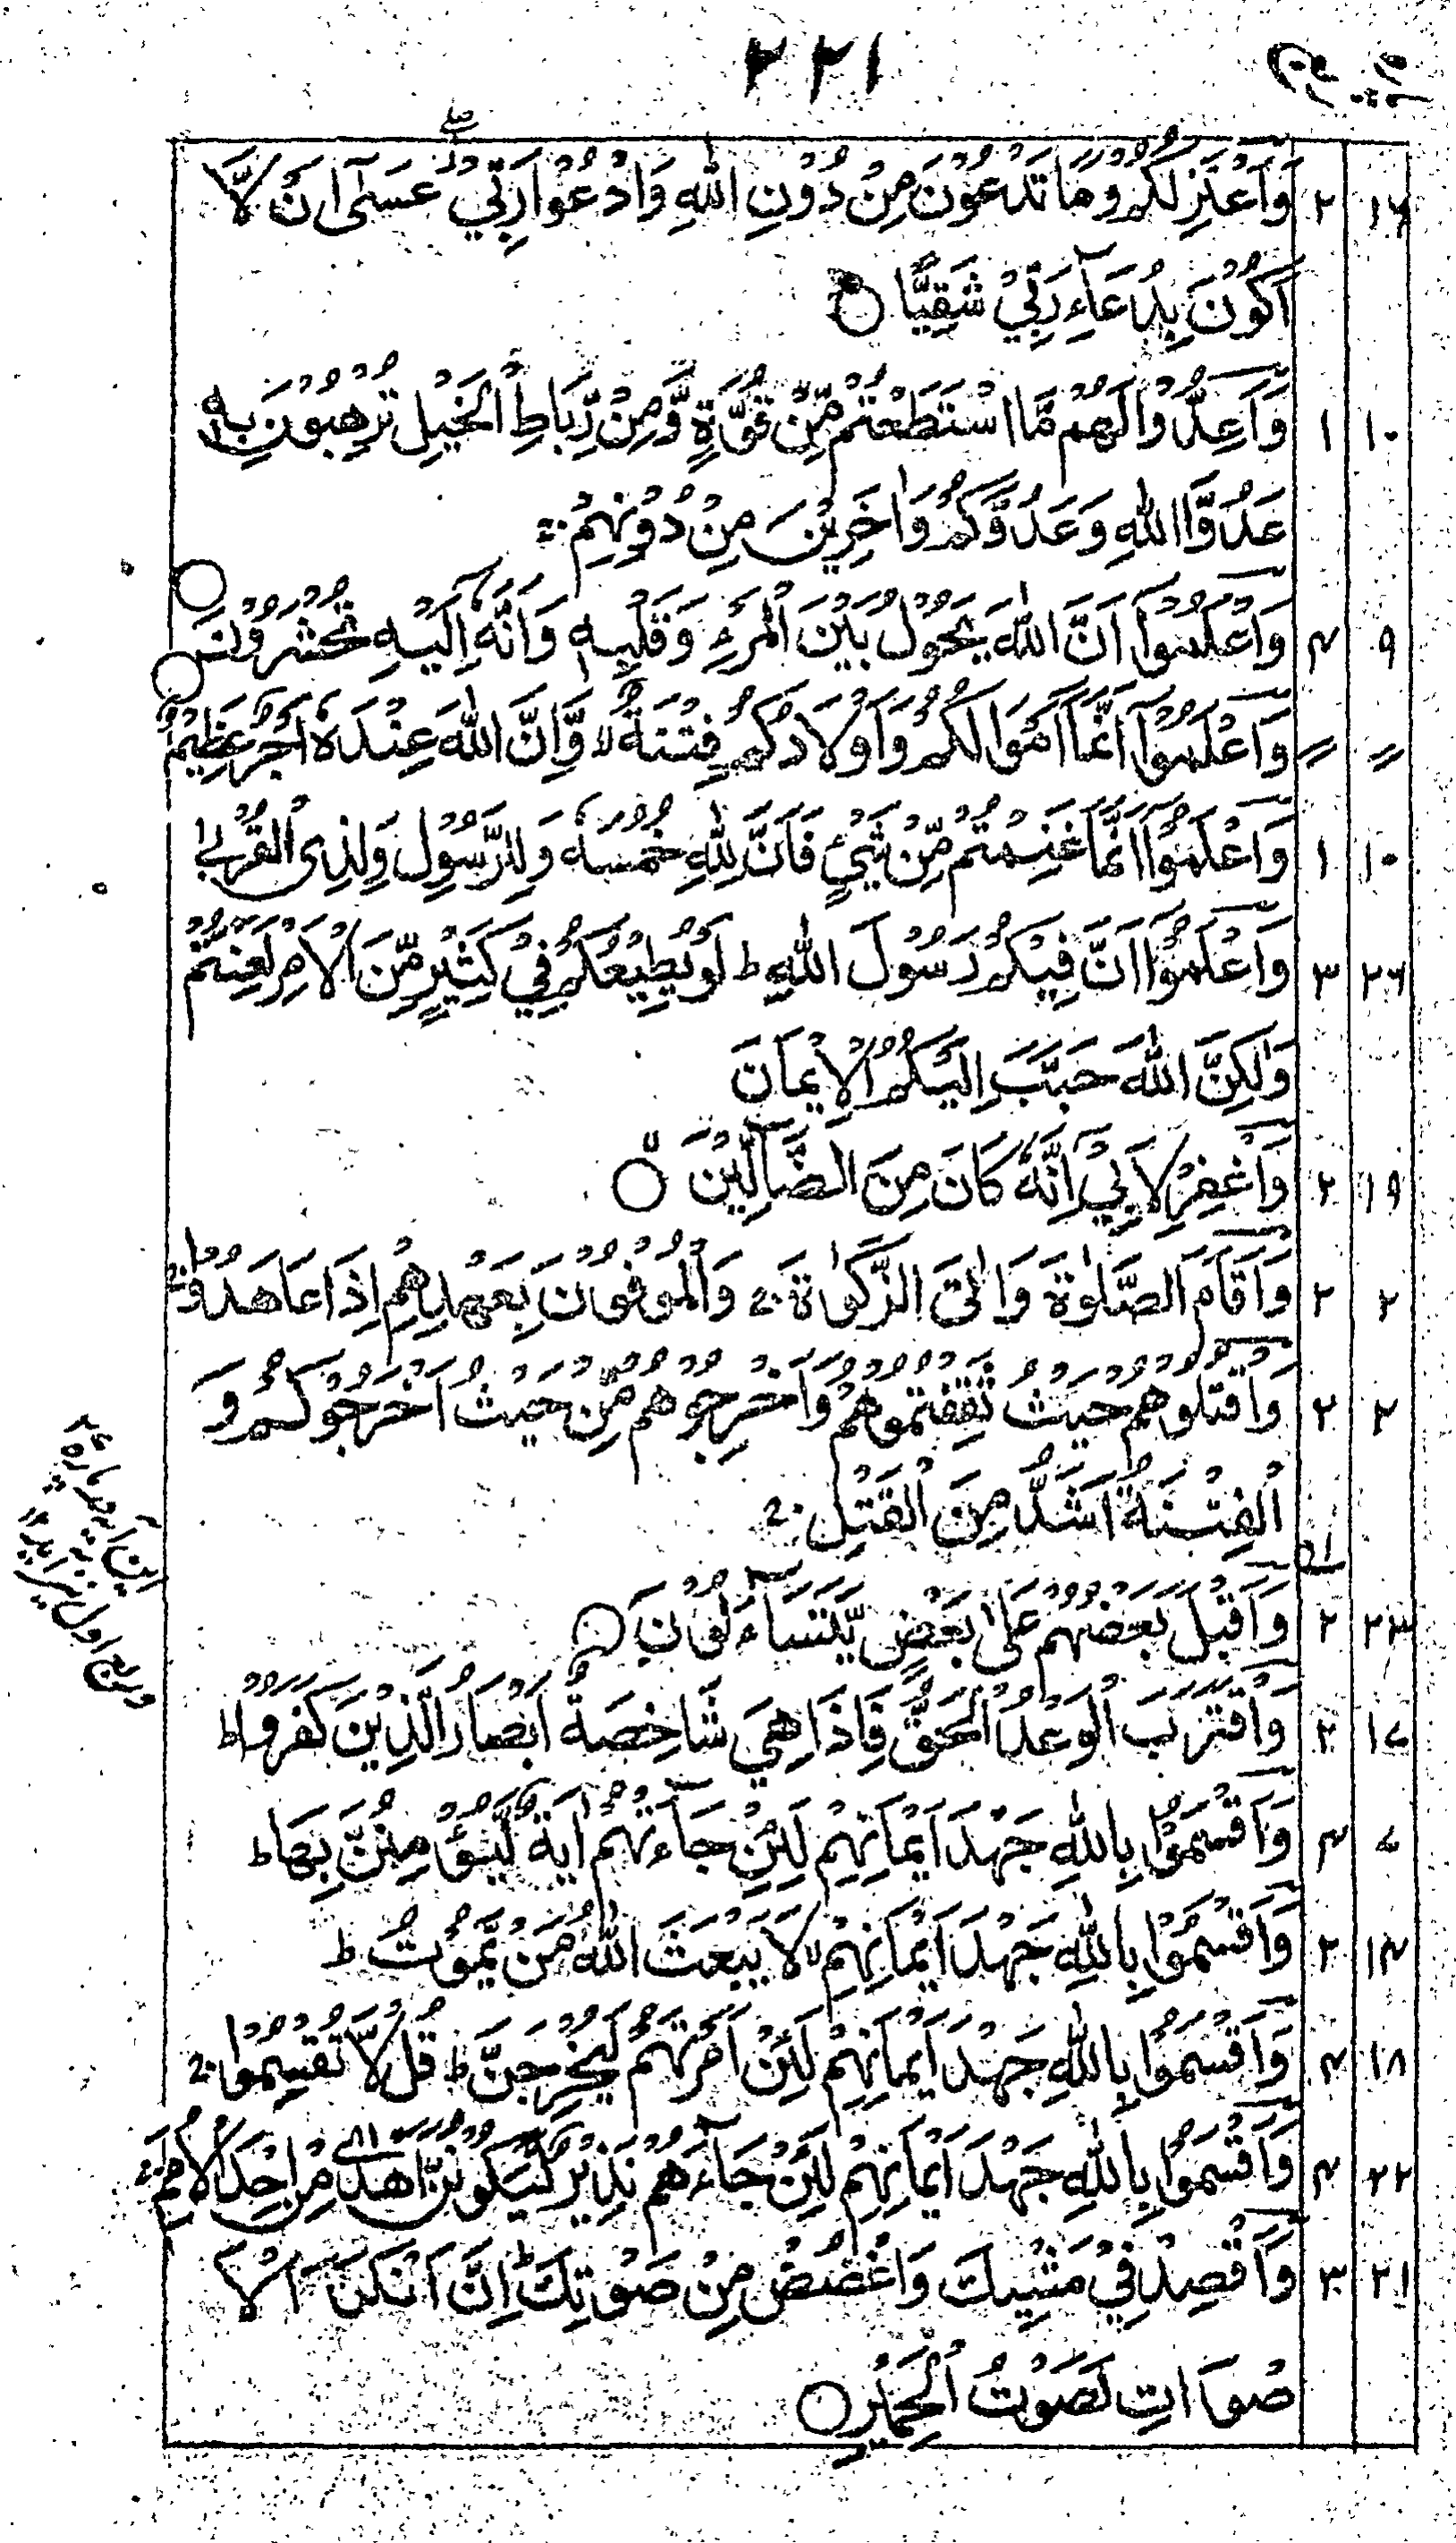 ٢٢١
١٦ ٢ وَاَعْتَزِلُكُمْ وَمَا تَدْعُوْنَ مِنْ دُوْنِ اللّٰهِ وَاَدْعُوْا رَبِّيْ صلے عَسٰٓى اَنْ لَّا
اَكُوْنَ بِدُعَآءِ رَبِّيْ شَقِيًّا ○
١٠ ١ وَاَعِدُّوْا لَهُمْ مَّا اسْتَطَعْتُمْ مِّنْ قُوَّةٍ وَّمِنْ رِّبَاطِ الْخَيْلِ تُرْهِبُوْنَ بِهٖ
عَدُوَّ اللّٰهِ وَعَدُوَّكُمْ وَاٰخَرِيْنَ مِنْ دُوْنِهِمْ
٩ ٤ وَاعْلَمُوْٓا اَنَّ اللّٰهَ يَحُوْلُ بَيْنَ الْمَرْءِ وَقَلْبِهٖ وَاَنَّهٗٓ اِلَيْهِ تُحْشَرُوْنَ ○
〃 〃 وَاعْلَمُوْٓا اَنَّمَآ اَمْوَالُكُمْ وَاَوْلَادُكُمْ فِتْنَةٌ لا وَّاَنَّ اللّٰهَ عِنْدَهٗٓ اَجْرٌ عَظِيْمٌ ○
١٠ ١ وَاعْلَمُوْٓا اَنَّمَا غَنِمْتُمْ مِّنْ شَيْءٍ فَاَنَّ لِلّٰهِ خُمُسَهٗ وَلِلرَّسُوْلِ وَلِذِى الْقُرْبٰى
٢٦ ٣ وَاعْلَمُوْٓا اَنَّ فِيْكُمْ رَسُوْلَ اللّٰهِ ط لَوْ يُطِيْعُكُمْ فِيْ كَثِيْرٍ مِّنَ الْاَمْرِ لَعَنِتُّمْ
وَلٰكِنَّ اللّٰهَ حَبَّبَ اِلَيْكُمُ الْاِيْمَانَ
١٩ ٢ وَاغْفِرْ لِاَبِيْٓ اِنَّهٗ كَانَ مِنَ الضَّآلِّيْنَ لا ○
٢ ٢ وَاَقَامَ الصَّلٰوةَ وَاٰتَى الزَّكٰوةَ ج وَالْمُوْفُوْنَ بِعَهْدِهِمْ اِذَا عَاهَدُوْا ج
٢ ٢ وَاقْتُلُوْهُمْ حَيْثُ ثَقِفْتُمُوْهُمْ وَاَخْرِجُوْهُمْ مِّنْ حَيْثُ اَخْرَجُوْكُمْ وَ
الْفِتْنَةُ اَشَدُّ مِنَ الْقَتْلِ ج
٢٣ ٢ وَاَقْبَلَ بَعْضُهُمْ عَلٰى بَعْضٍ يَّتَسَآءَلُوْنَ ○
١٧ ٢ وَاقْتَرَبَ الْوَعْدُ الْحَقُّ فَاِذَا هِيَ شَاخِصَةٌ اَبْصَارُ الَّذِيْنَ كَفَرُوْا ط
٧ ٤ وَاَقْسَمُوْا بِاللّٰهِ جَهْدَ اَيْمَانِهِمْ لَئِنْ جَآءَتْهُمْ اٰيَةٌ لَّيُؤْمِنُنَّ بِهَا ط
١٤ ٢ وَاَقْسَمُوْا بِاللّٰهِ جَهْدَ اَيْمَانِهِمْ لا لَا يَبْعَثُ اللّٰهُ مَنْ يَّمُوْتُ ط
١٨ ٤ وَاَقْسَمُوْا بِاللّٰهِ جَهْدَ اَيْمَانِهِمْ لَئِنْ اَمَرْتَهُمْ لَيَخْرُجُنَّ ط قُلْ لَّا تُقْسِمُوْا ج
٢٢ ٤ وَاَقْسَمُوْا بِاللّٰهِ جَهْدَ اَيْمَانِهِمْ لَئِنْ جَآءَهُمْ نَذِيْرٌ لَّيَكُوْنُنَّ اَهْدٰى مِنْ اِحْدَى الْاُمَمِ ج
٢١ ٣ وَاقْصِدْ فِيْ مَشْيِكَ وَاغْضُضْ مِنْ صَوْتِكَ ط اِنَّ اَنْكَرَ الْاَ
صْوَاتِ لَصَوْتُ الْحَمِيْرِ ○
این آیه در پاره
ربع اول نیز آید ١٢